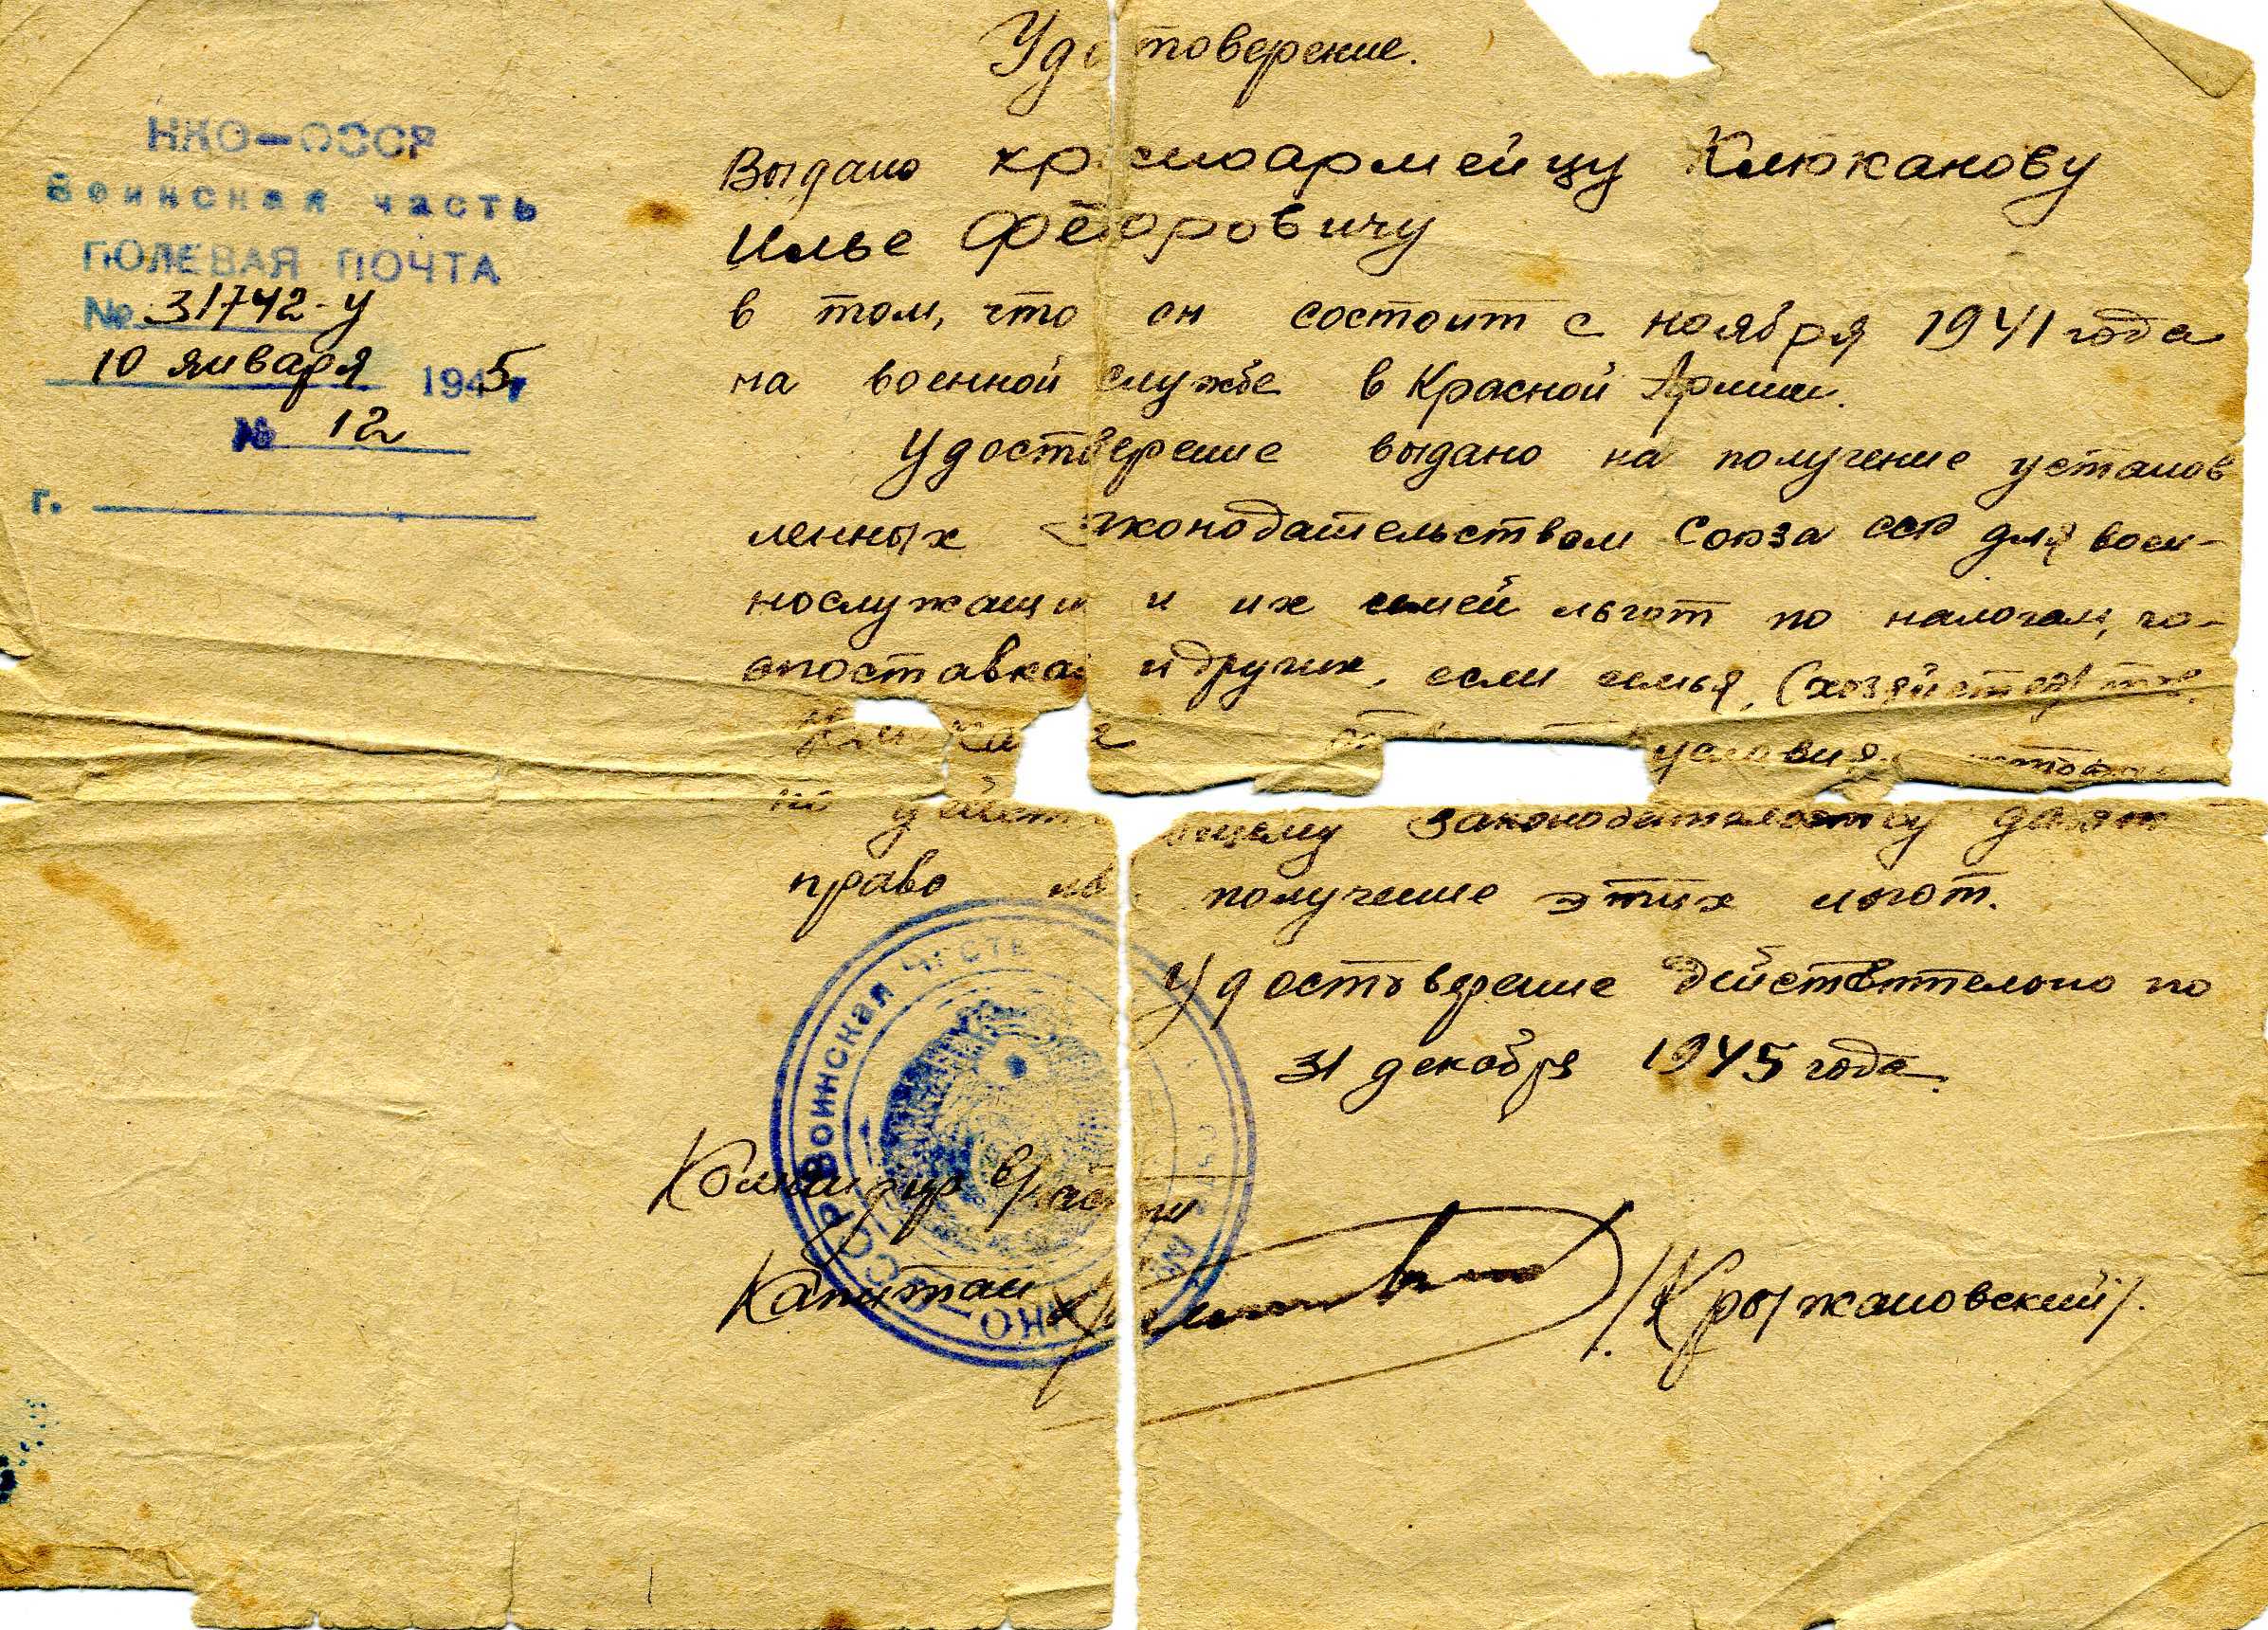 Удостоверение.
НКО-СССР
Воинская часть
ПОЛЕВАЯ ПОЧТА
№ 31742-У
10 января 1945
№ 12
г.
Выдано красноармейцу Клюканову
Илье Фёдоровичу
в том, что он состоит с ноября 1941 года
на военной службе в Красной Армии.
Удостоверение выдано на получение установ
ленных законодательством Союза ССР для воен-
нослужащих и их семей льгот по налогам, го-
споставкам и других, если семья, (хозяйство)
условия
законодательству дают
право на получение этих льгот.
Удостоверение действительно по
31 декабря 1945 года.
Командир в/части
Капитан /Крыжановский/.
НКО-СССР Воинская часть №